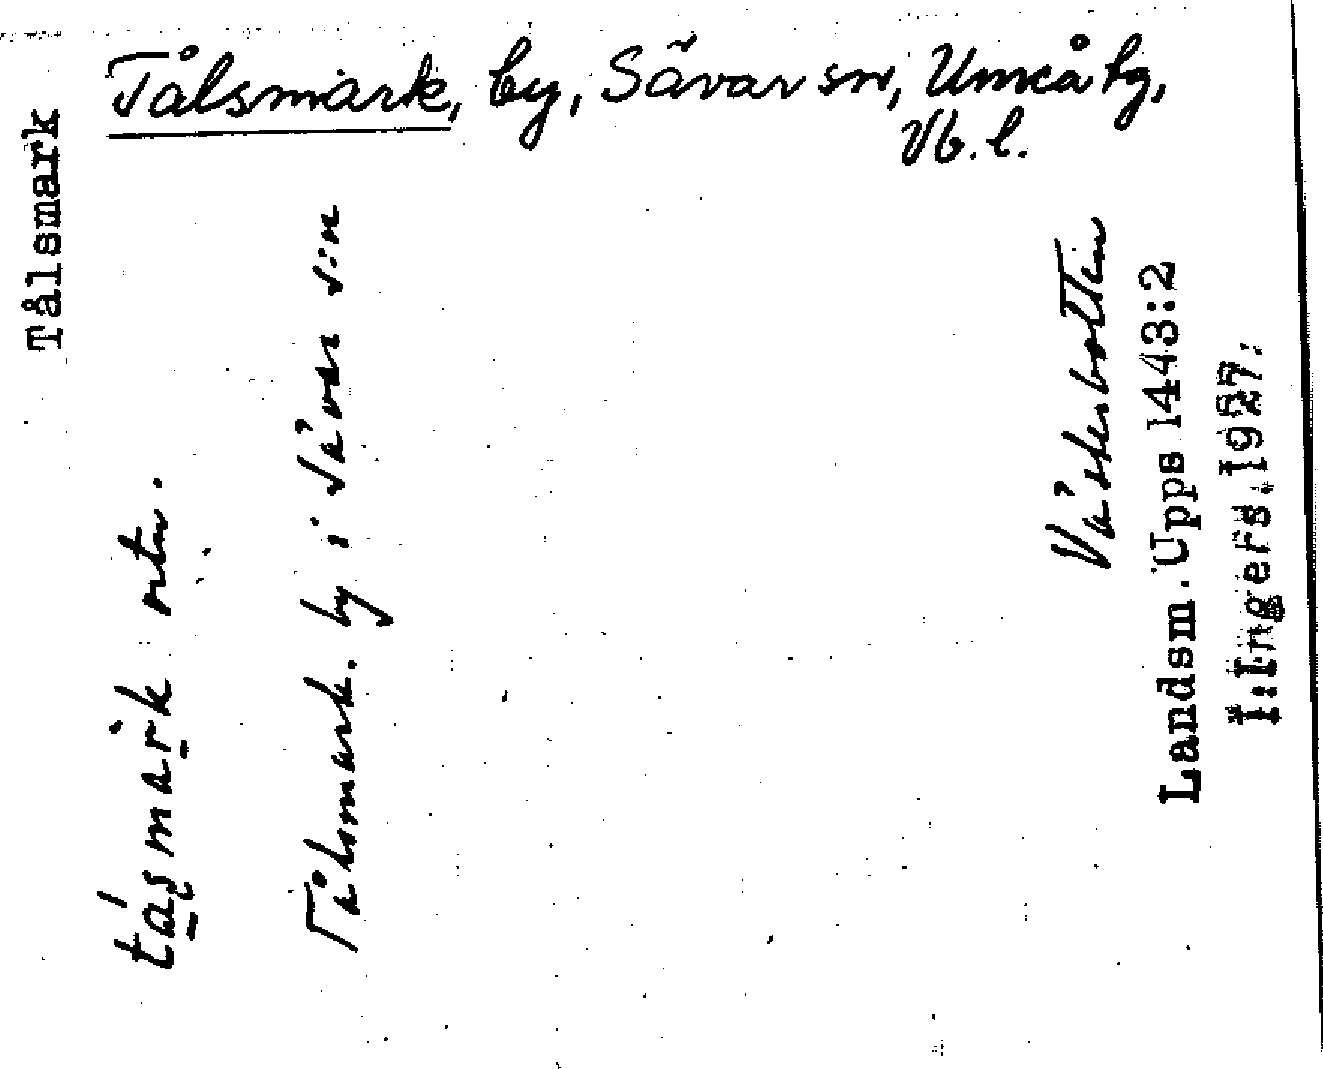 Tålsmark, by, Sävar sn, Umeå tg,
Vb. l.
Tålsmark
ortn.
Tålsmark. by i Sävar s:n
Västerbotten
Landsm. Upps 1443:2
I. Ingers. 1927.